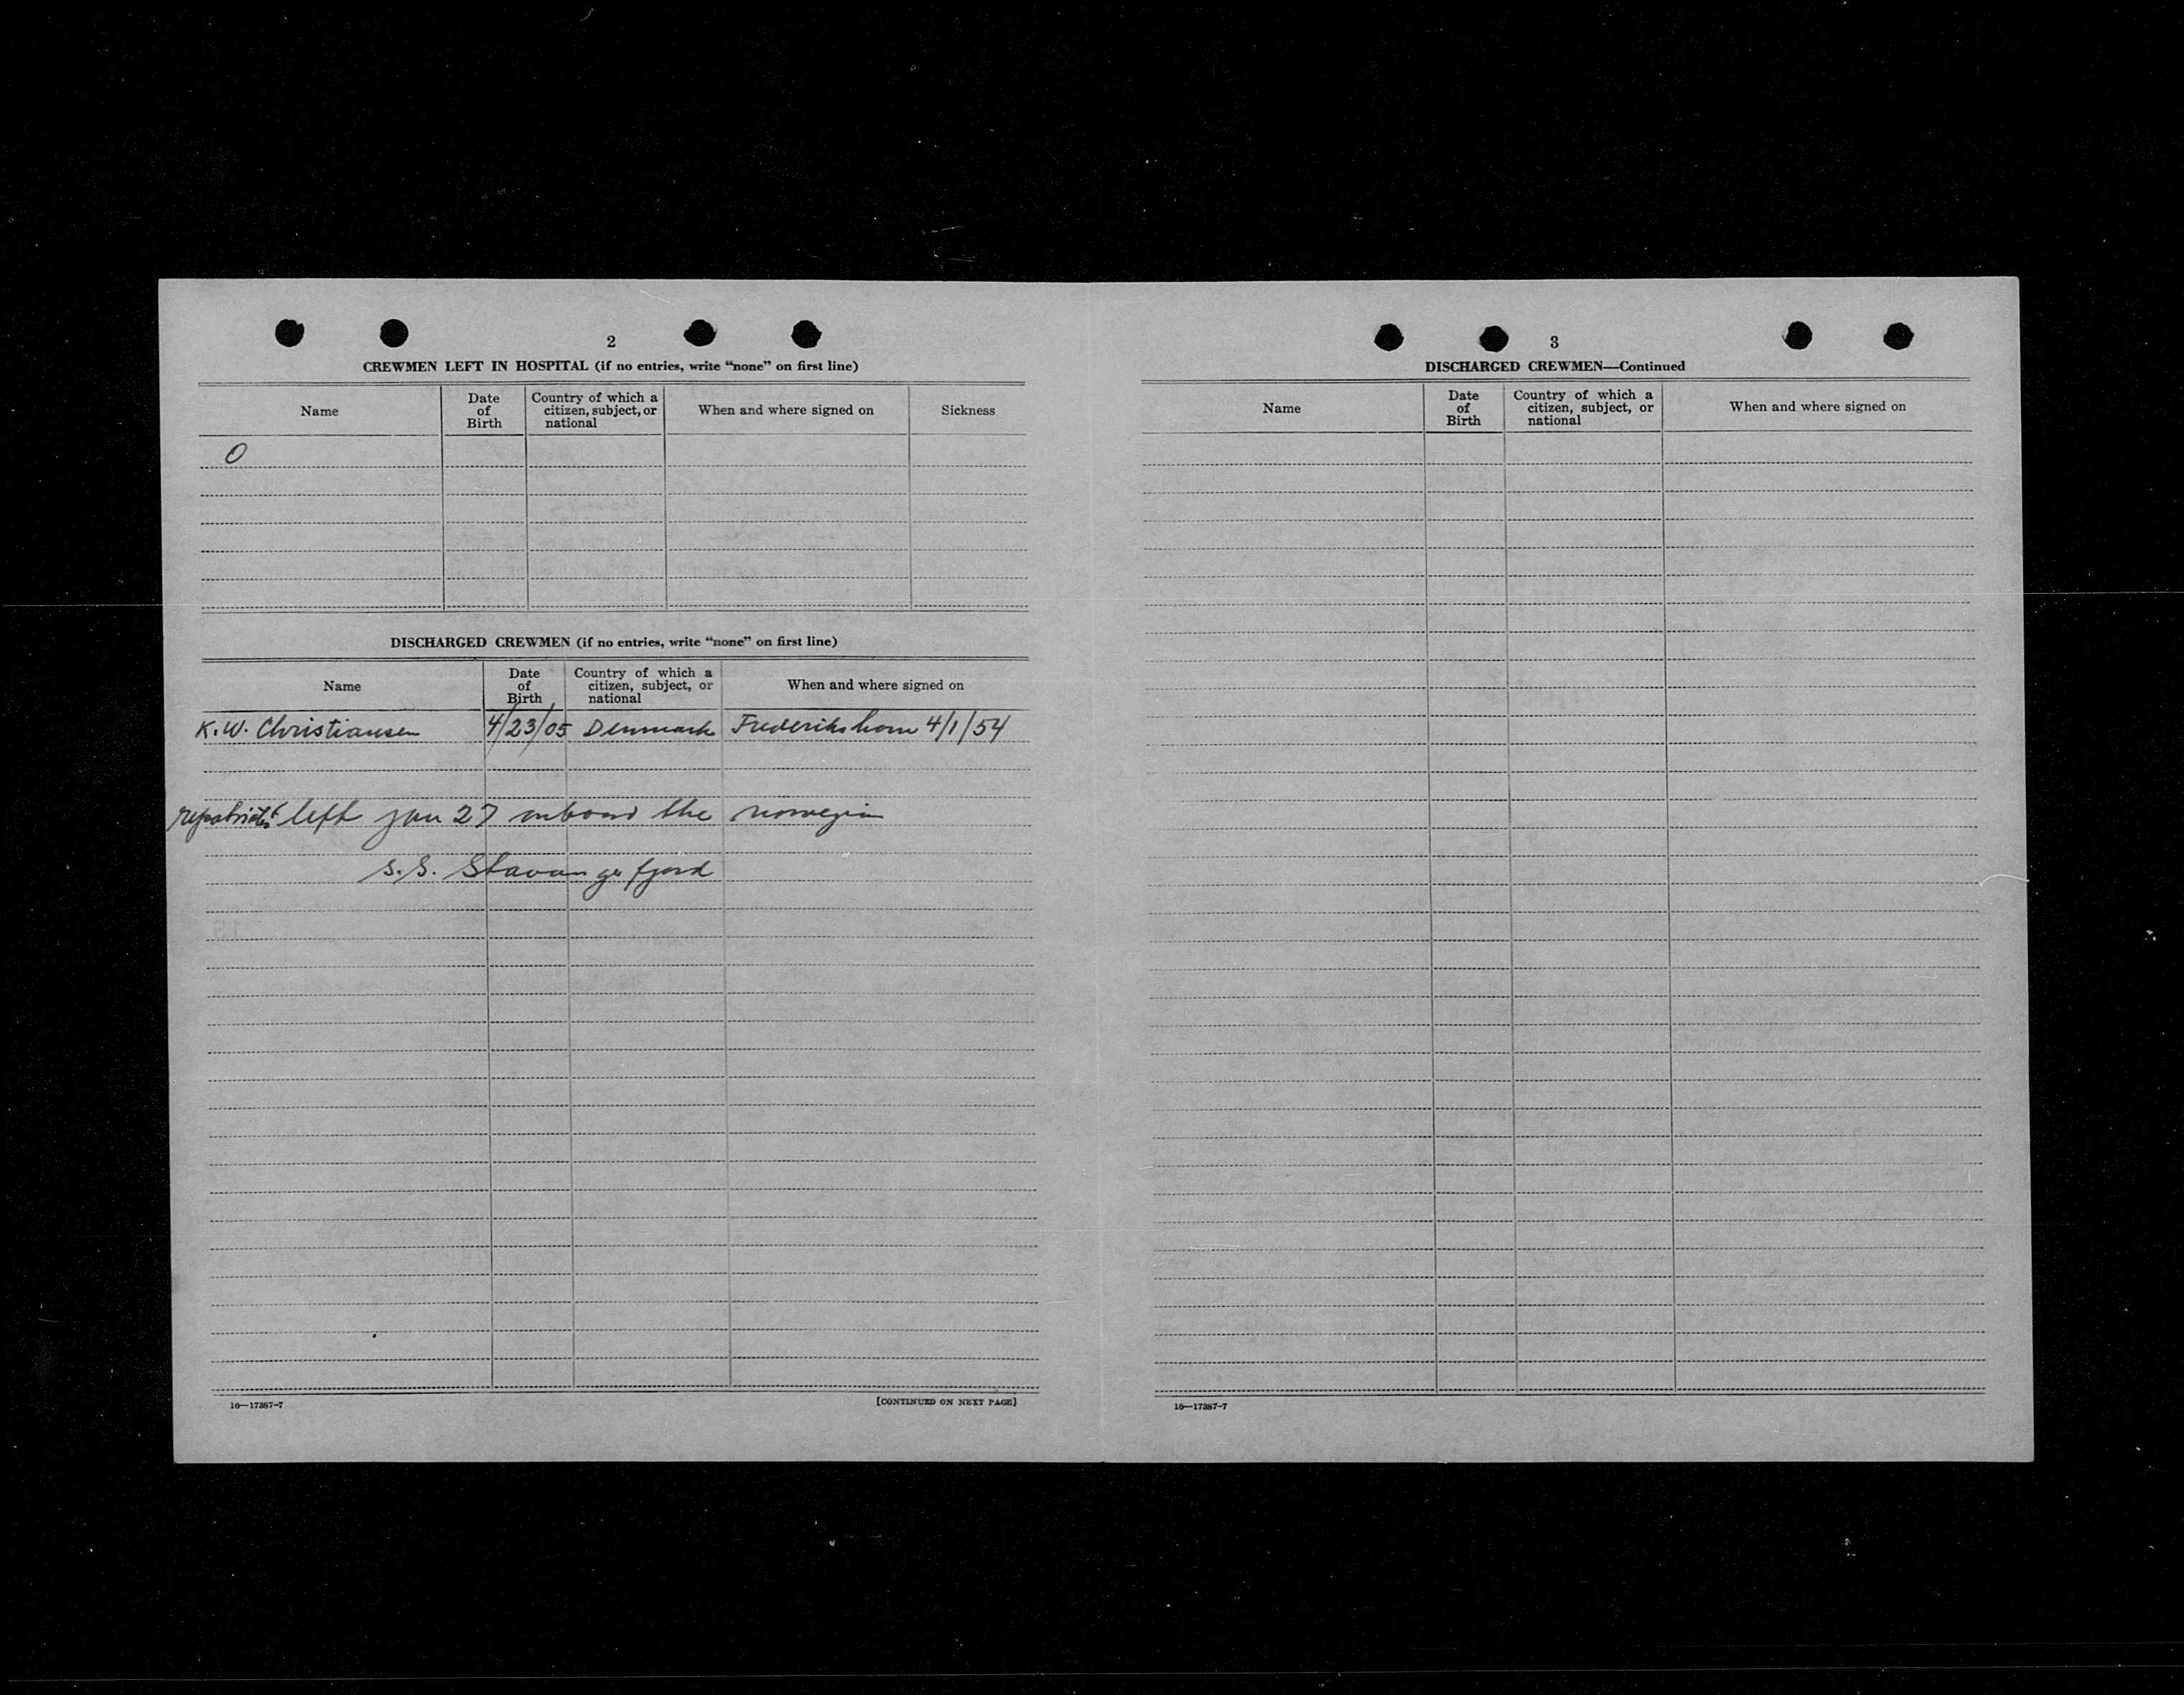 2
CREWMEN LEFT IN HOSPITAL (if no entries, write “none” on first line)
Name
Date of Birth
Country of which a citizen, subject, or national
When and where signed on
Sickness
O
DISCHARGED CREWMEN (if no entries, write “none” on first line)
Name
Date of Birth
Country of which a citizen, subject, or national
When and where signed on
K. W. Christiansen 4/23/05 Denmark Frederikshavn 4/1/54
left jan 27 onboard the norwegian
S.S. Stavangerfjord
16—17387-7
[CONTINUED ON NEXT PAGE]
3
DISCHARGED CREWMEN—Continued
Name
Date of Birth
Country of which a citizen, subject, or national
When and where signed on
16—17387-7